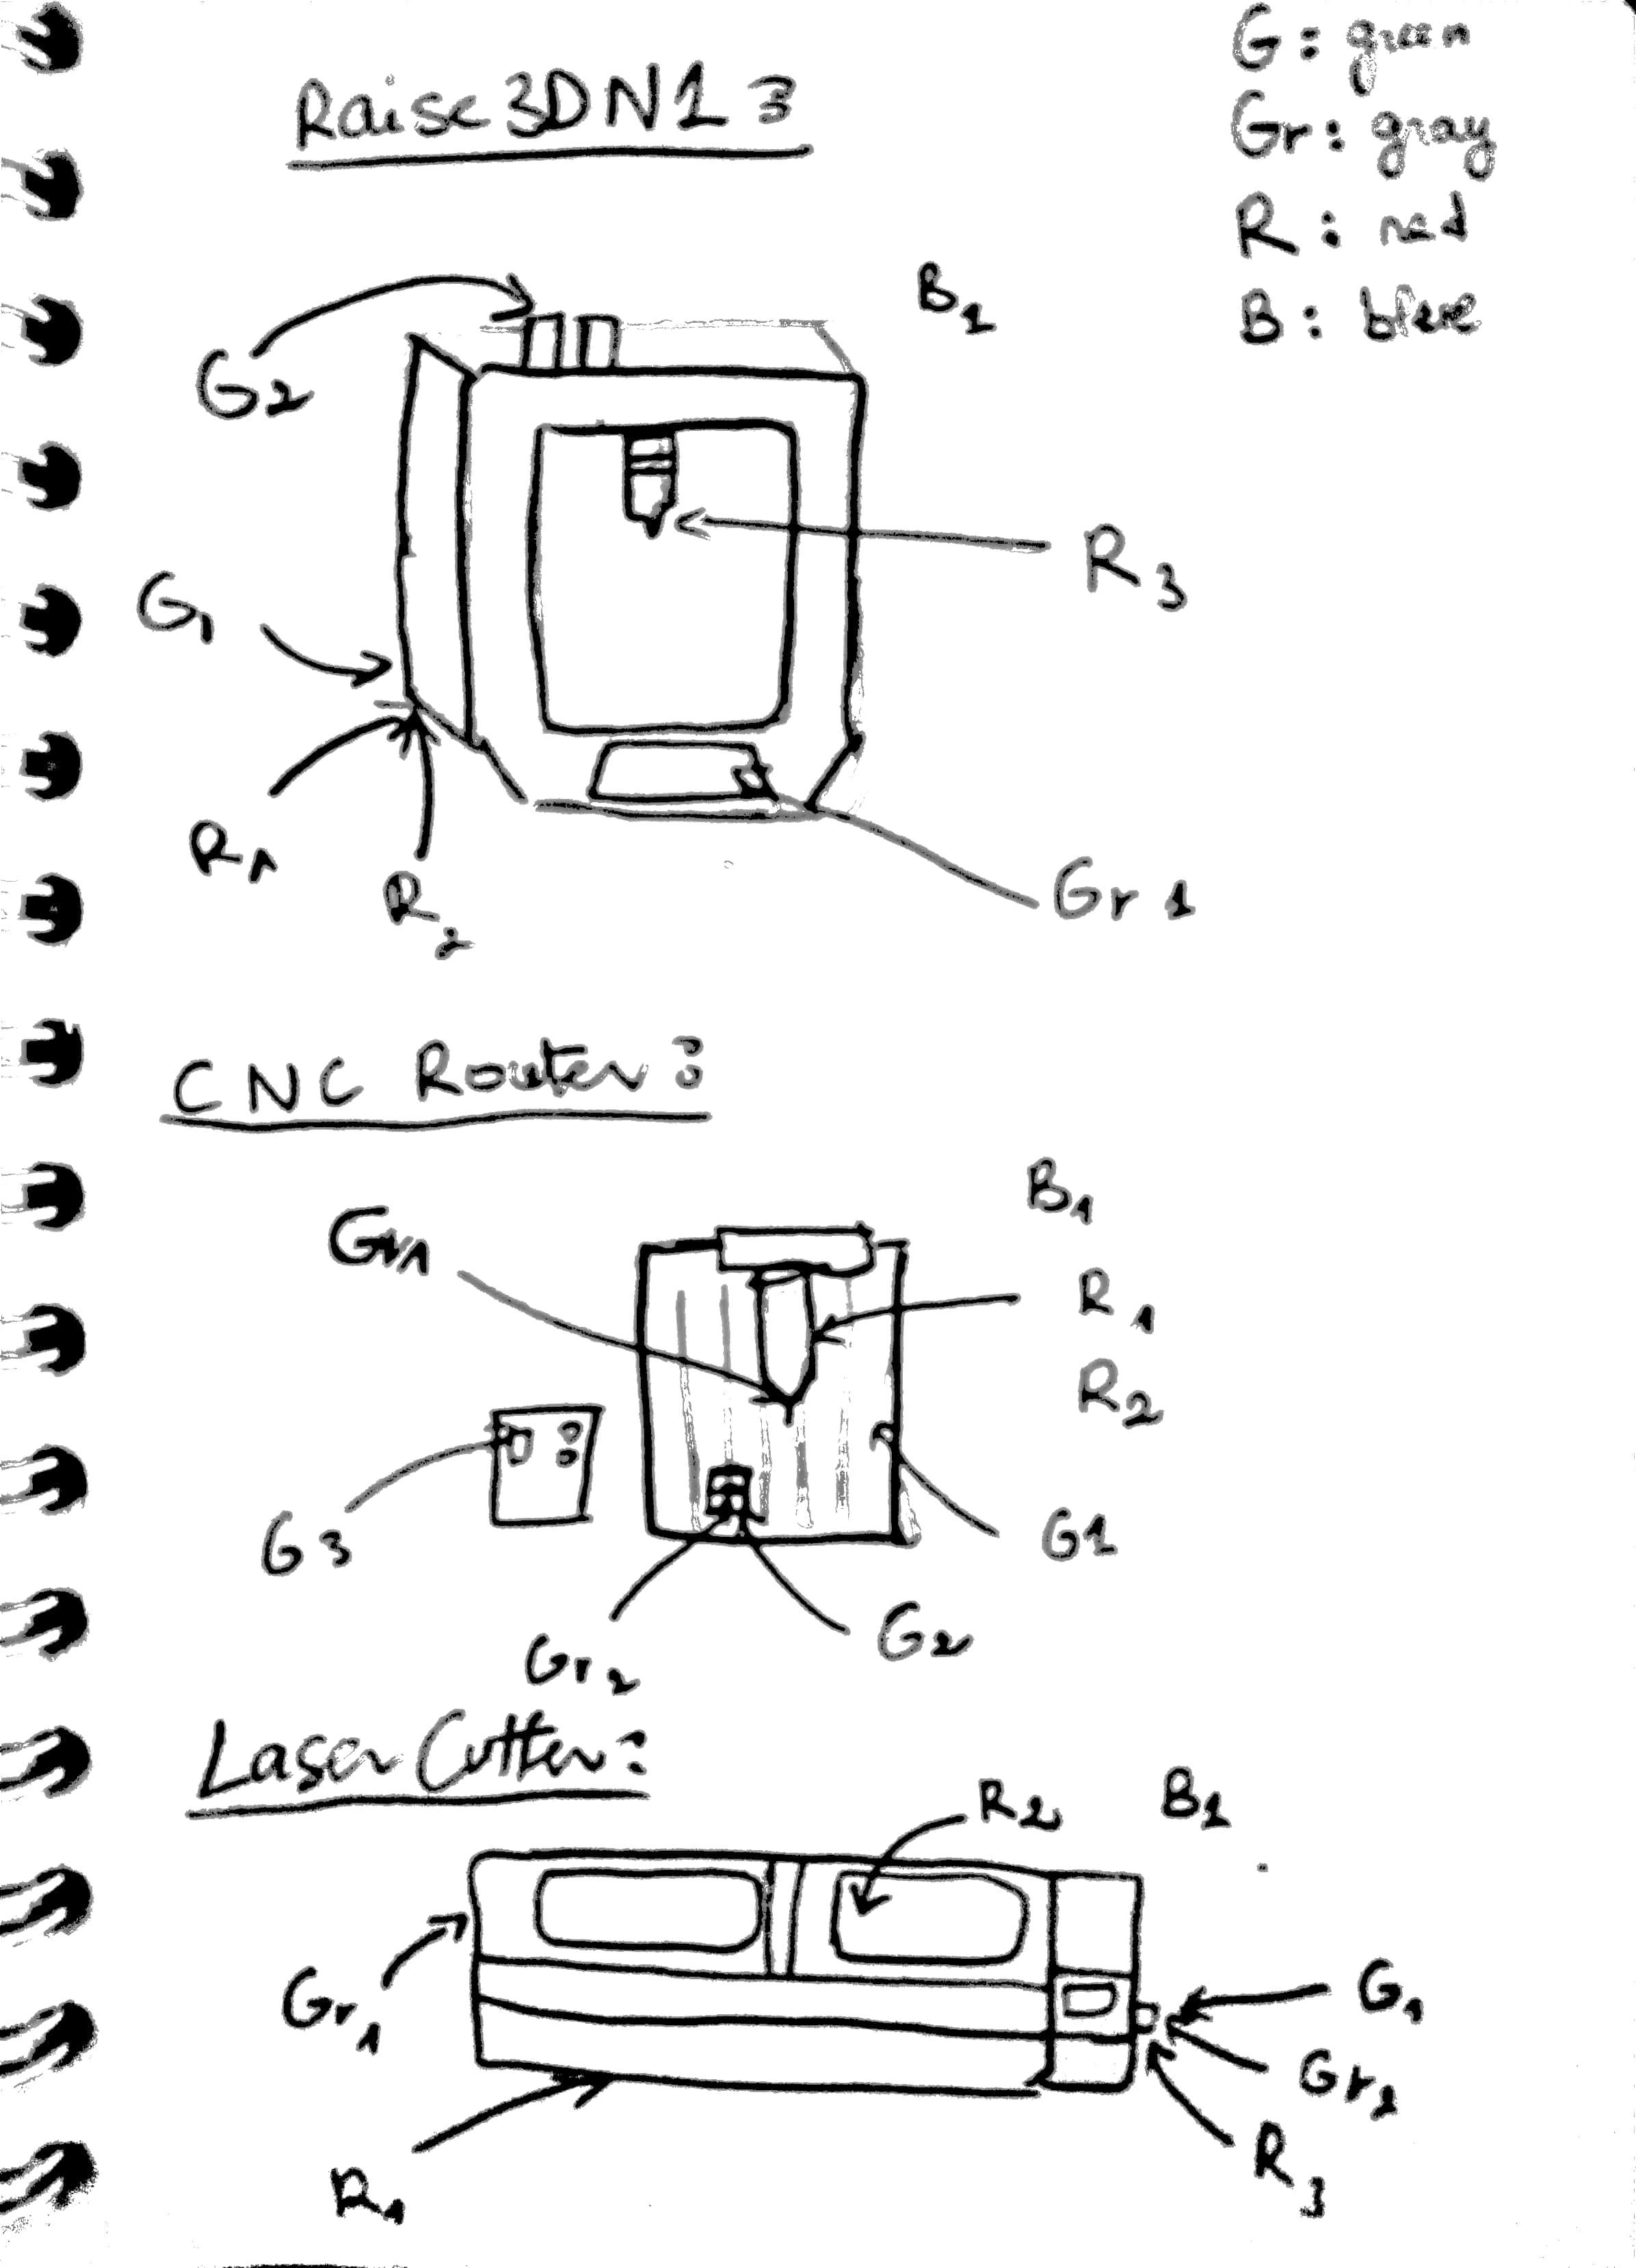 G: green
Gr: gray
R: red
B: blue
Raise3DN2:
B1
G2
R3
G1
R1
R2
Gr 1
CNC Router:
B1
Gr1
R1
R2
G3
G1
Gr2
G2
Laser Cutter:
R2
B1
Gr1
G1
Gr2
R3
R1